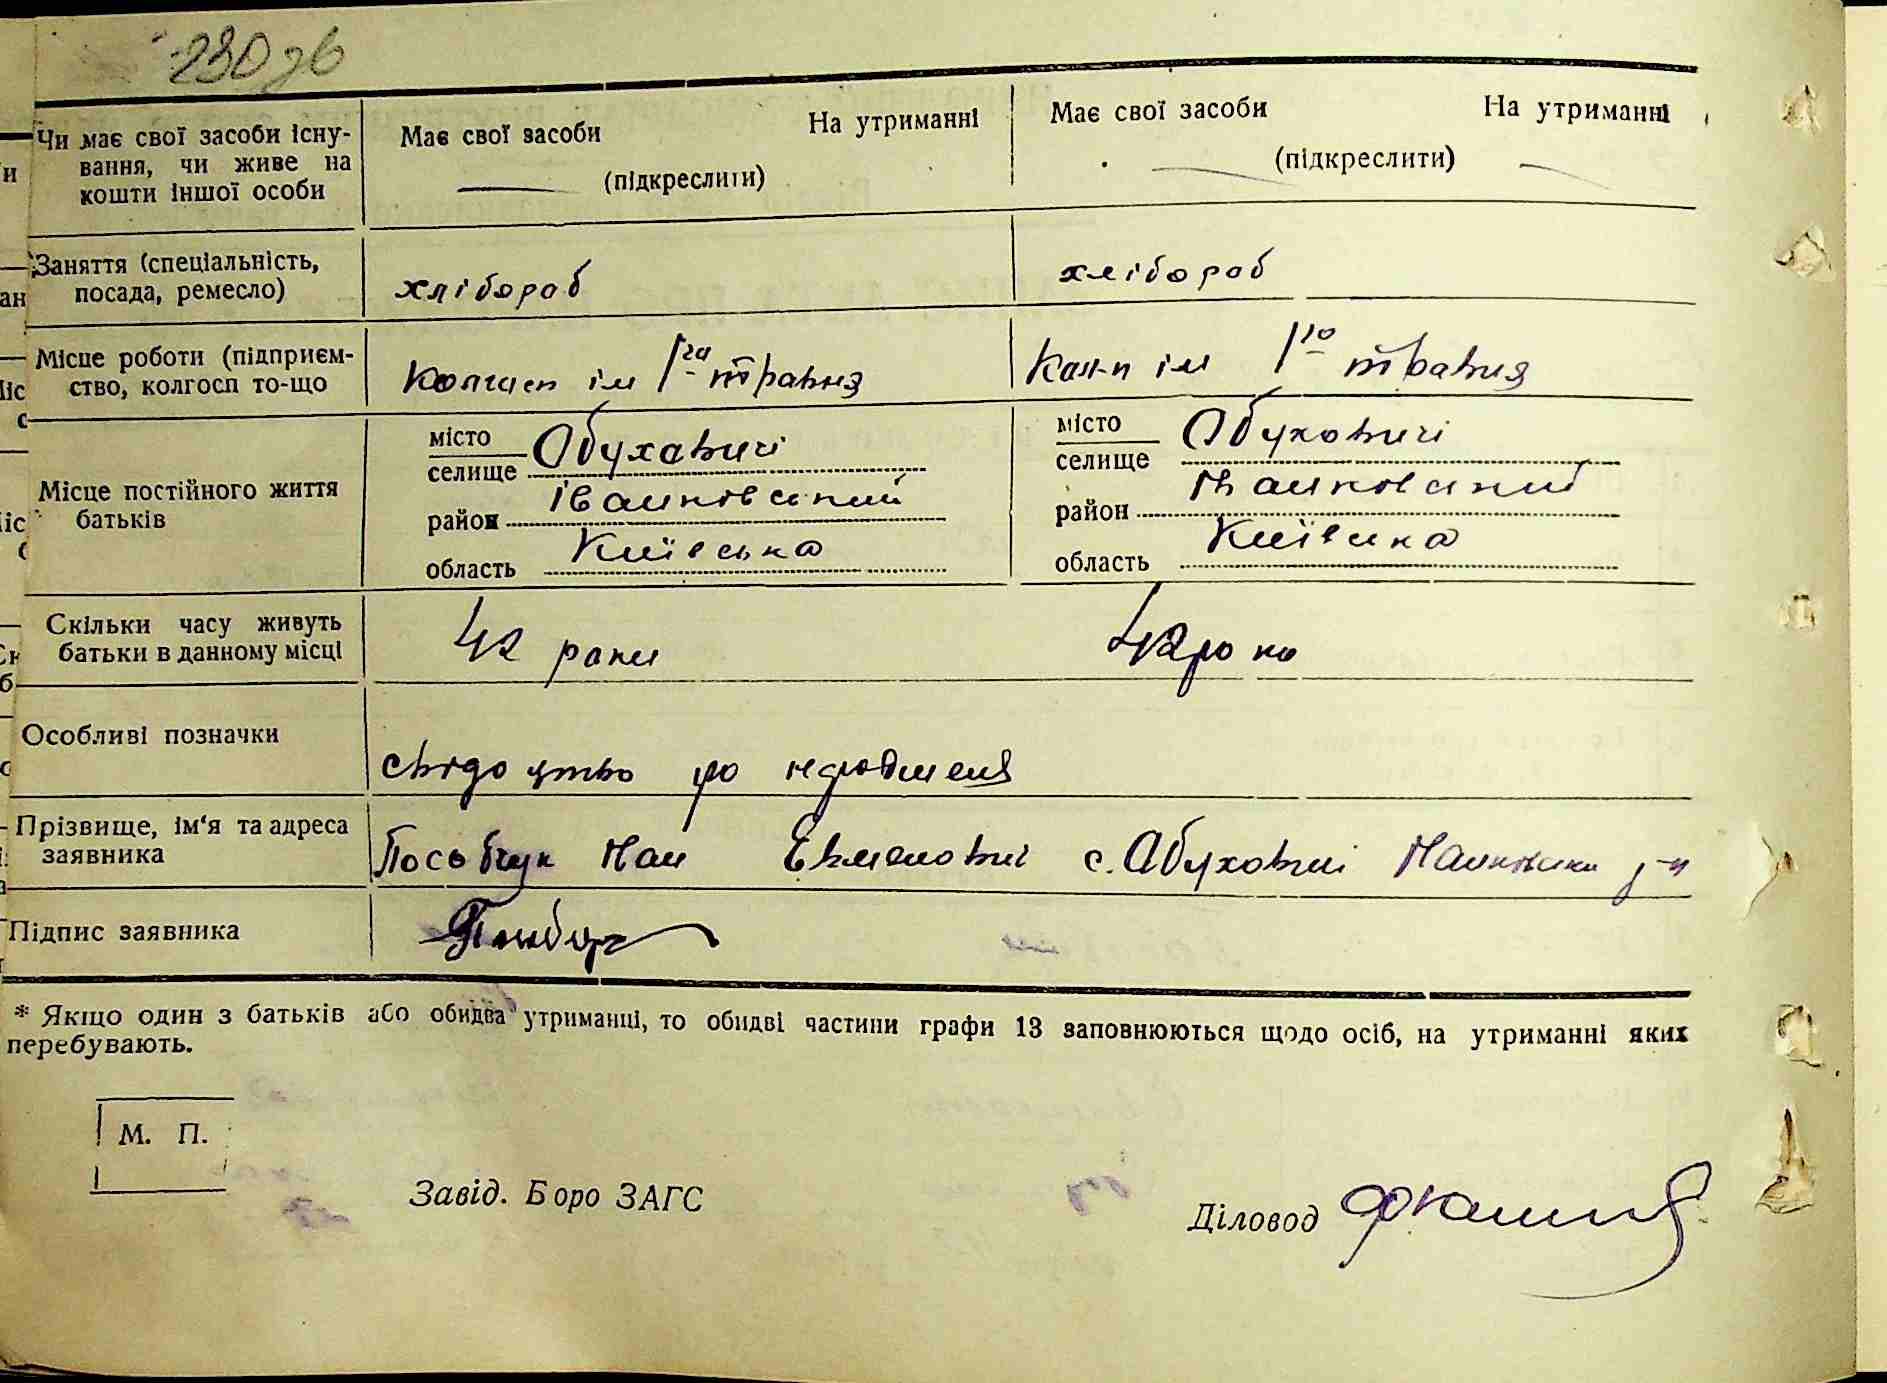 230 зв
Чи має свої засоби існу-
вання, чи живе на
кошти іншої особи
Має свої засоби На утриманні
(підкреслити)
Має свої засоби На утриманні
(підкреслити)
Заняття (спеціальність,
посада, ремесло)
хлібороб
хлібороб
Місце роботи (підприєм-
ство, колгосп то-що
Колгосп ім 1го травня
Кол-п ім 1го травня
Місце постійного життя
батьків
місто
селище Обуховичі
район Іванковський
область Київська
місто
селище Обуховичі
район Іванковський
область Київська
Скільки часу живуть
батьки в данному місці
42 роки
42 роки
Особливі позначки
свідоцтво про народження
Прізвище, ім'я та адреса
заявника
Іван с. Обуховичі р-н
Підпис заявника
* Якщо один з батьків або обидва утриманці, то обидві частини графи 13 заповнюються щодо осіб, на утриманні яких
перебувають.
М. П.
Завід. Боро ЗАГС
Діловод